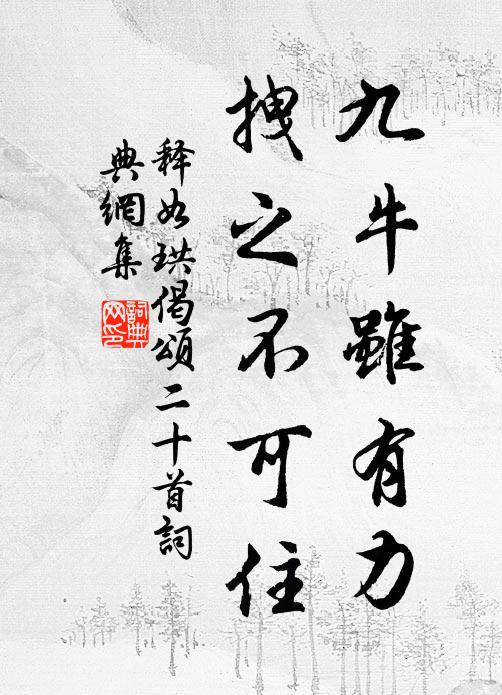 九牛雖有力
拽之不可住
释如珙偈頌二十首詞
典網集
詞典
网印